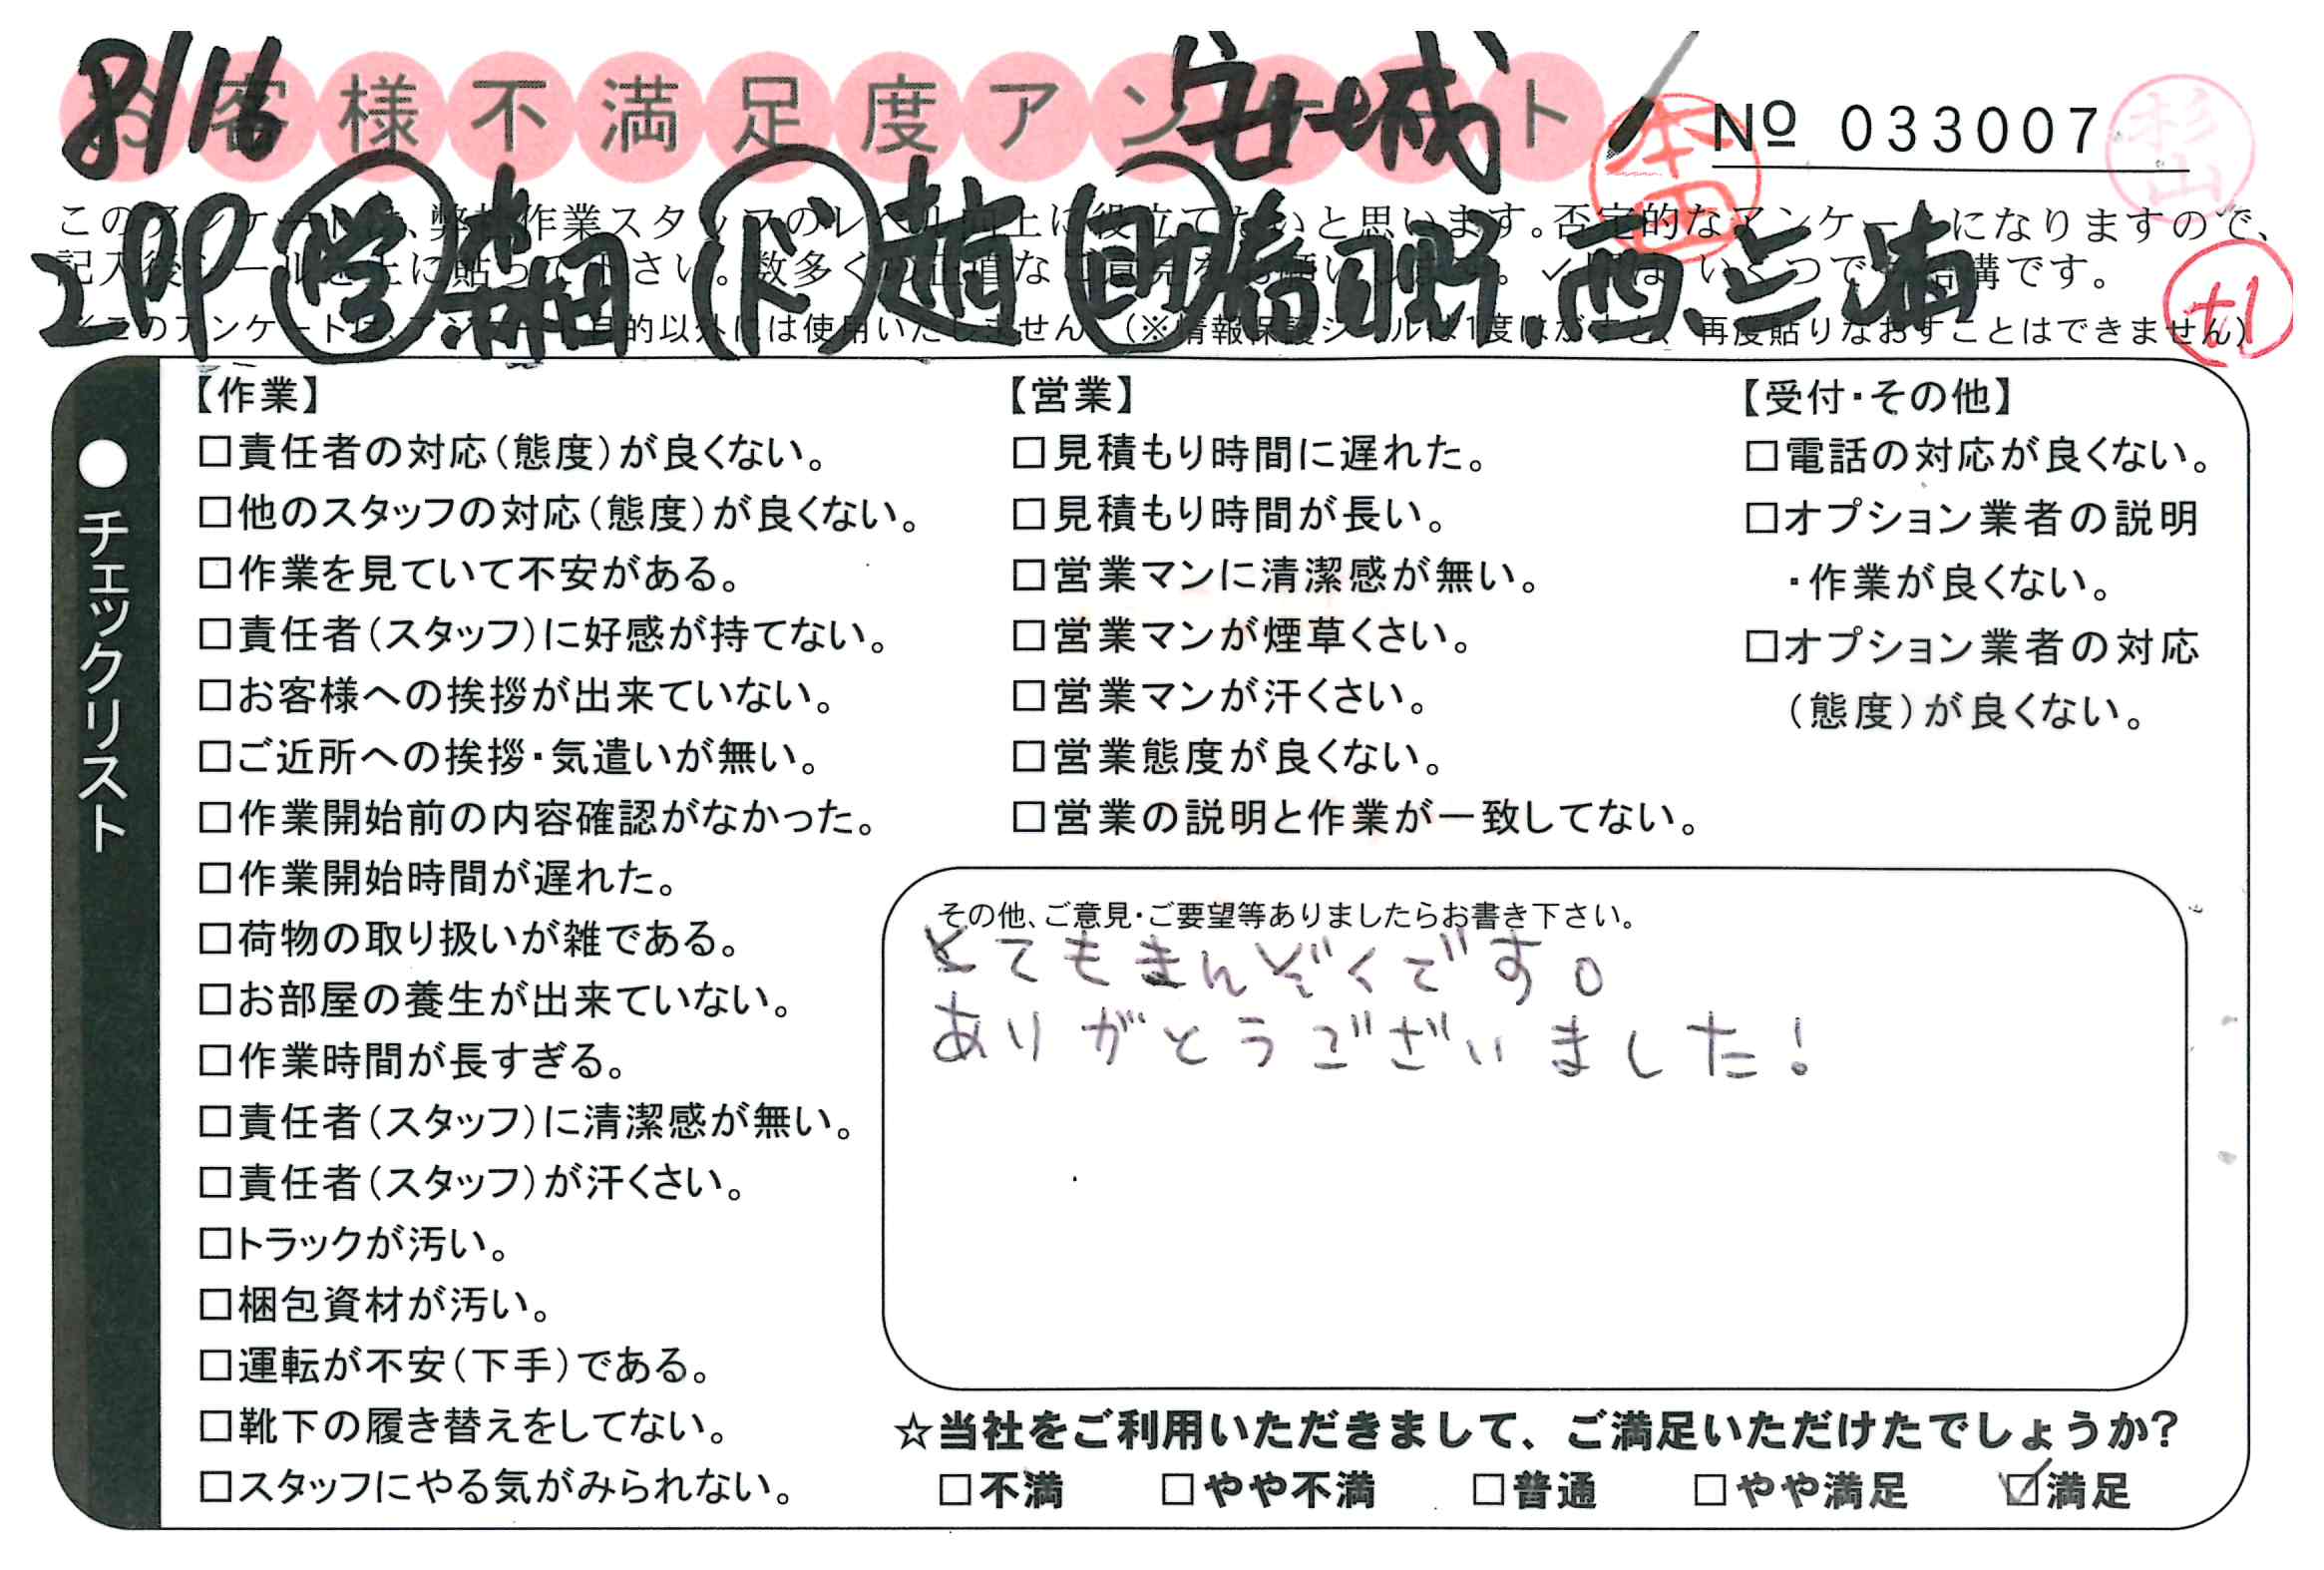 8/16 安城
お客様不満足度アンケート
№ 033007
本田
杉山
2PP 営 ド 趙 助 春日野. 西、三浦
このアンケートは、弊社作業スタッフのレベル向上に役立てたいと思います。否定的なアンケートになりますので、
記入後シールを上に貼って下さい。数多くの正直なご意見をお願いします。✓印は、いくつでも結構です。
(※情報保護シールは1度はがすと、再度貼りなおすことはできません)
●チェックリスト
【作業】
□責任者の対応(態度)が良くない。
□他のスタッフの対応(態度)が良くない。
□作業を見ていて不安がある。
□責任者(スタッフ)に好感が持てない。
□お客様への挨拶が出来ていない。
□ご近所への挨拶・気遣いが無い。
□作業開始前の内容確認がなかった。
□作業開始時間が遅れた。
□荷物の取り扱いが雑である。
□お部屋の養生が出来ていない。
□作業時間が長すぎる。
□責任者(スタッフ)に清潔感が無い。
□責任者(スタッフ)が汗くさい。
□トラックが汚い。
□梱包資材が汚い。
□運転が不安(下手)である。
□靴下の履き替えをしてない。
□スタッフにやる気がみられない。
【営業】
□見積もり時間に遅れた。
□見積もり時間が長い。
□営業マンに清潔感が無い。
□営業マンが煙草くさい。
□営業マンが汗くさい。
□営業態度が良くない。
□営業の説明と作業が一致してない。
【受付・その他】
□電話の対応が良くない。
□オプション業者の説明
・作業が良くない。
□オプション業者の対応
(態度)が良くない。
その他、ご意見・ご要望等ありましたらお書き下さい。
とてもまんぞくです。
ありがとうございました!
☆当社をご利用いただきまして、ご満足いただけたでしょうか?
□不満 □やや不満 □普通 □やや満足 ☑満足